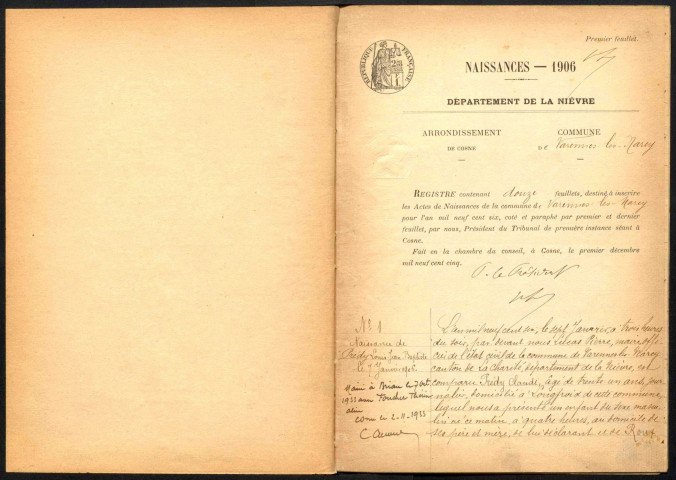 Premier feuillet.
RÉPUBLIQUE FRANÇAISE
NAISSANCES — 1906
DÉPARTEMENT DE LA NIÈVRE
ARRONDISSEMENT
DE COSNE
COMMUNE
DE Varennes-les-Narcy
REGISTRE contenant douze feuillets, destiné à inscrire
les Actes de Naissances de la commune de Varennes-les-Narcy
pour l'an mil neuf cent six, coté et paraphé par premier et dernier
feuillet, par nous, Président du Tribunal de première instance séant à
Cosne.
Fait en la chambre du conseil, à Cosne, le premier décembre
mil neuf cent cinq.
P. le Président
N° 1
Naissance de
Prédy Louis Jean Baptiste
le 7 Janvier 1906
Marié à le 7 Oct
1933 avec
le 2-11-1933
L'an mil neuf cent six, le sept Janvier à trois heures
du soir, par devant nous Lucas Pierre, maire offi-
cier de l'état civil de la commune de Varennes les Narcy
canton de La Charité, département de la Nièvre, est
comparu Prédy Claude, âgé de trente un ans, jour-
nalier, domicilié à de cette commune
lequel nous a présenté un enfant du sexe mascu-
lin né ce matin à quatre heures, au domicile de
ses père et mère, de lui déclarant et de Roux